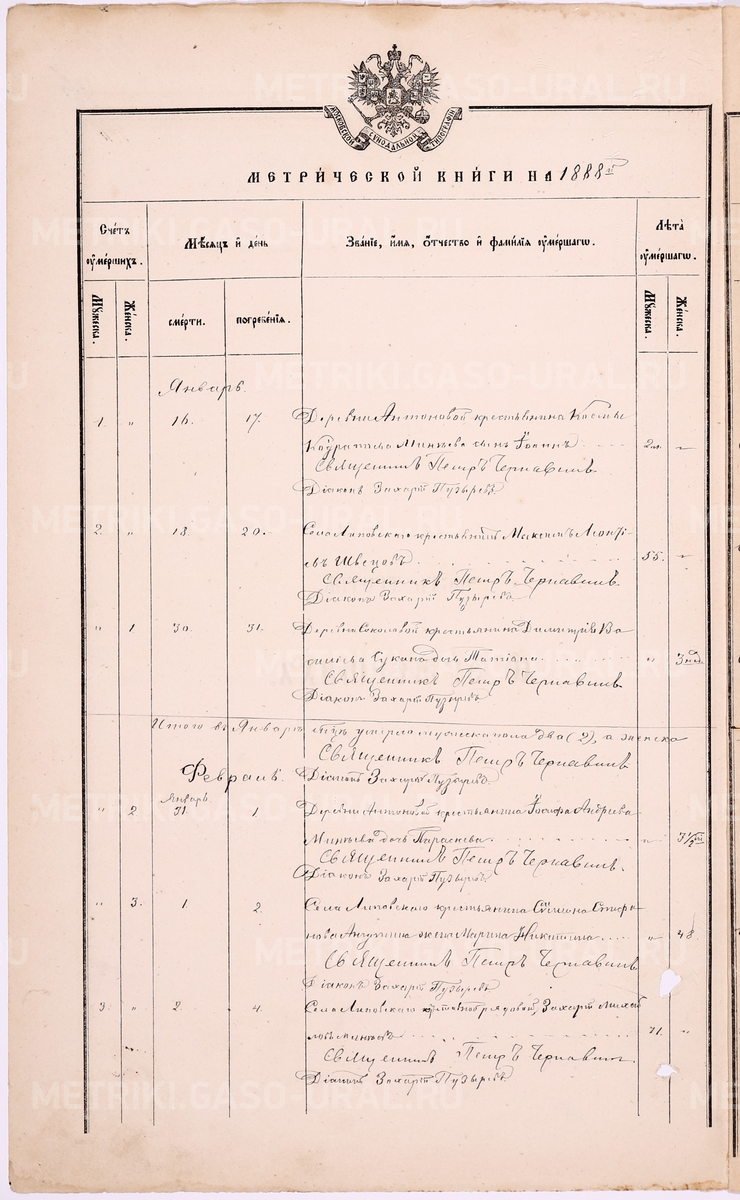 МОСКОВСКОЙ СѴНОДАЛЬНОЙ ТИПОГРАФІИ
МЕТРИ́ЧЕСКОЙ КНИ́ГИ НА 1888 г.
Сче́тъ ᲂу҆ме́ршихъ.
Мѣ́сяцъ и҆ де́нь
Зва́нїе, и҆́мя, ѻ҆́тчество и҆ фами́лїя ᲂу҆ме́ршагѡ.
Лѣ́та ᲂу҆ме́ршагѡ.
Мꙋ́жеска.
Же́нска.
сме́рти.
погребе́нїя.
Мꙋ́жеска.
Же́нска.
Январь.
1. " 16. 17. Деревни Антоновой крестьянина Космы
Минѣева сынъ Іоаннъ 2 "
Священникъ Петръ Чернавинъ
Діаконъ Захарій Пузыревъ
2. " 18. 20. Села Липовскаго крестьянинъ Максимъ
Швецовъ 55. "
Священникъ Петръ Чернавинъ
Діаконъ Захарій Пузыревъ
" 1 30. 31. Деревни Соколовой крестьянина Димитрія Ва
сильева дочь Татіана " 3 нед.
Священникъ Петръ Чернавинъ
Діаконъ Захарій Пузыревъ
Итого въ Январѣ умерло мужеска пола два (2), а женска
Священникъ Петръ Чернавинъ
Февраль. Діаконъ Захарій Пузыревъ
Январь
" 2 31. 1 Деревни Антоновой крестьянина Іосифа Андреева
Минѣева дочь Параскева "
Священникъ Петръ Чернавинъ.
Діаконъ Захарій Пузыревъ
" 3. 1 2. Села Липовскаго крестьянина Сѵмеона Стефа
нова жена Марина Никитина " 48
Священникъ Петръ Чернавинъ
Діаконъ Захарій Пузыревъ
3. " 2. 4. Села Липовскаго рядовой, Захарій Михай
ловъ 71. "
Священникъ Петръ Чернавинъ
Діаконъ Захарій Пузыревъ
METRIKI.GASO-URAL.RU